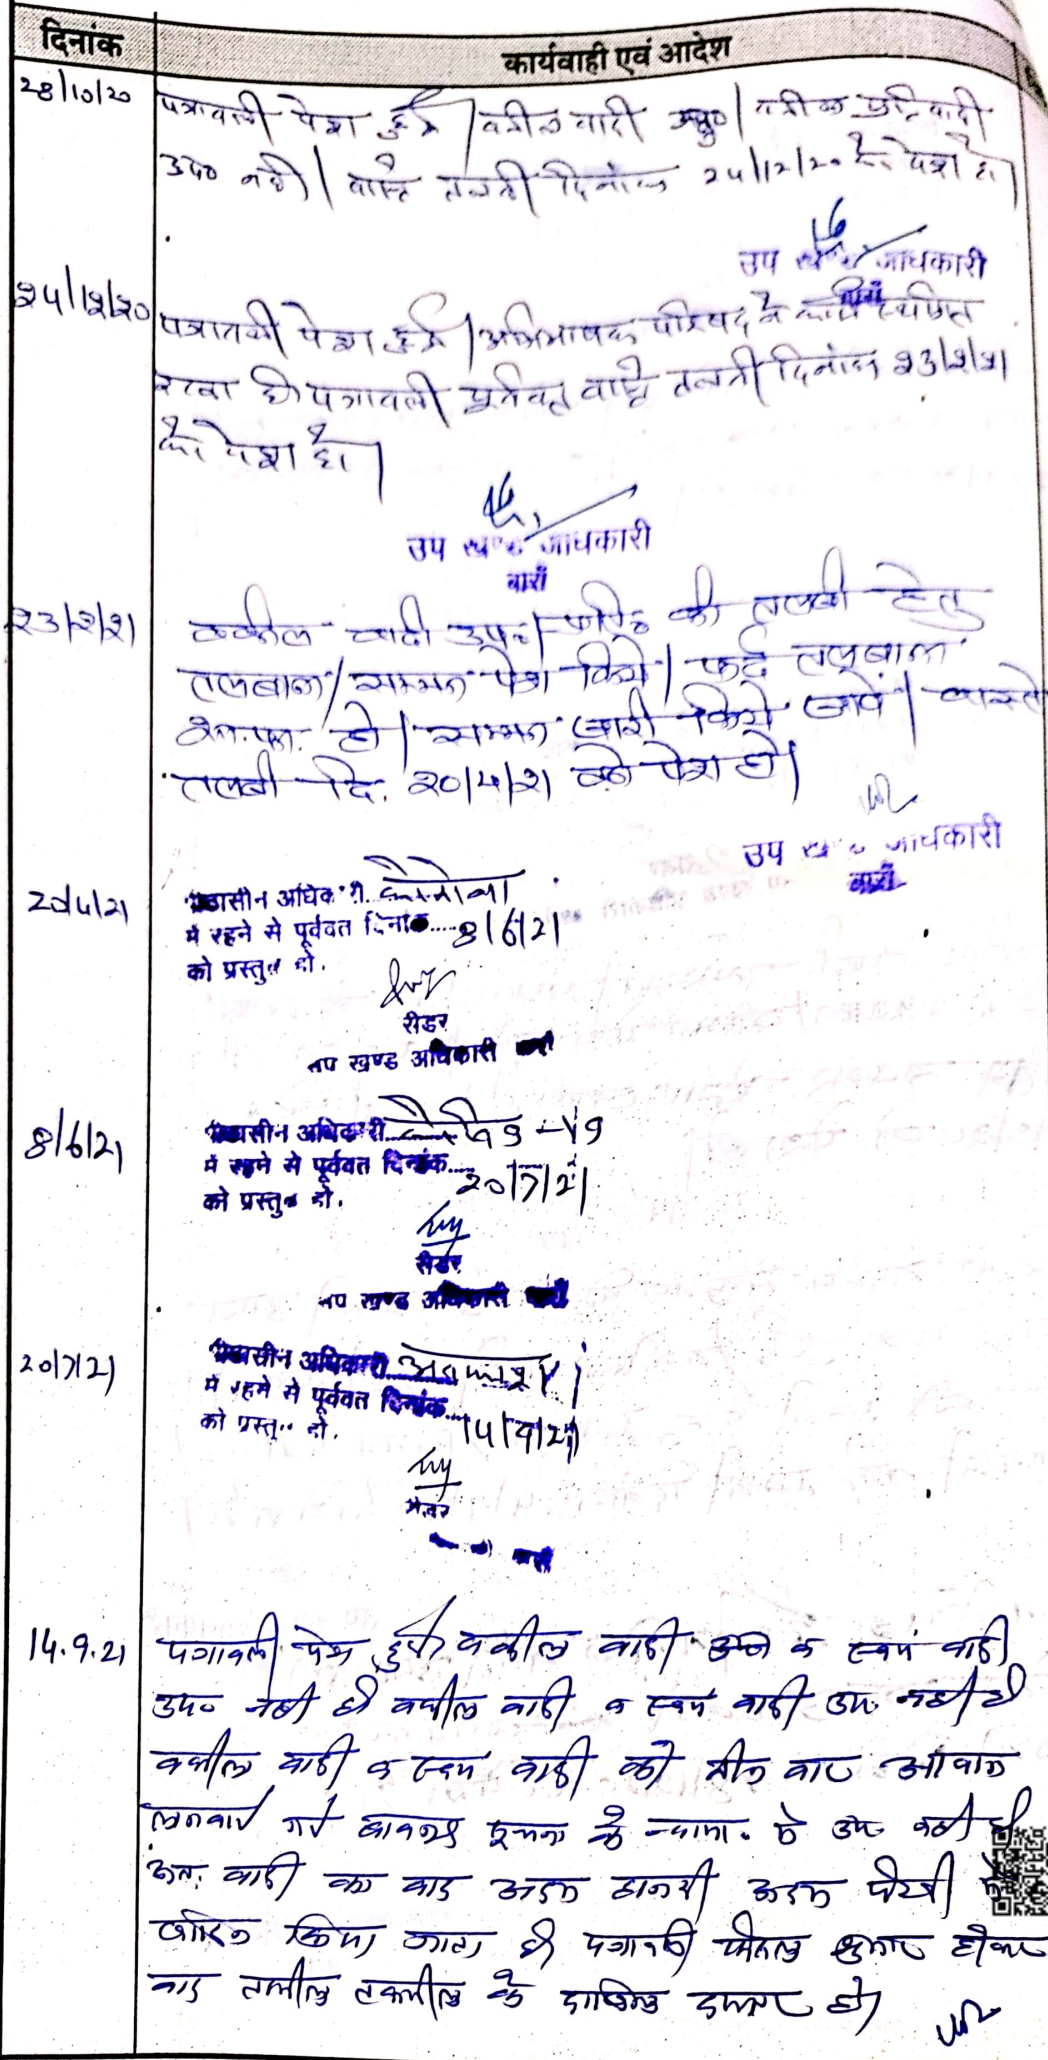 दिनांक
कार्यवाही एवं आदेश
28/10/20
पत्रावली पेश हुई। वकील वादी उप०। वकील प्रतिवादी
उप० नहीं। वास्ते तलबी दिनांक 24/12/20 को पेश हो।
उप खण्ड अधिकारी
बारां
24/12/20
पत्रावली पेश हुई। अभिभाषक परिषद ने कार्य स्थगित
रखा है। पत्रावली पूर्ववत् वास्ते तलबी दिनांक 23/2/21
को पेश हो।
उप खण्ड अधिकारी
बारां
23/2/21
वकील वादी उप०। की तलबी हेतु
तलबाना/सम्मन पेश किये। फर्द तलबाना
हो। सम्मन जारी किये जावें। वास्ते
तलबी दि. 20/4/21 को पेश हो।
उप खण्ड अधिकारी
बारां
20/4/21
पीठासीन अधिकारी कोरोना
में रहने से पूर्ववत दिनांक.....8/6/21
को प्रस्तुत हो.
रीडर
उप खण्ड अधिकारी बारां
8/6/21
पीठासीन अधिकारी कोविड-19
में रहने से पूर्ववत दिनांक....20/7/21
को प्रस्तुत हो.
रीडर
उप खण्ड अधिकारी बारां
20/7/21
पीठासीन अधिकारी अवकाश
में रहने से पूर्ववत दिनांक...14/9/21
को प्रस्तुत हो.
रीडर
बारां
14.9.21
पत्रावली पेश हुई। वकील वादी व स्वयं वादी
उप० नहीं है। वकील वादी व स्वयं वादी उप. नहीं है।
वकील वादी व स्वयं वादी को तीन बार आवाज
लगवाई गई बावजूद सूचना के न्याया. में उप. नहीं है।
अतः वादी का वाद अदम हाजरी अदम पैरवी में
खारिज किया जाता है। पत्रावली फैसल शुमार होकर
बाद तामील तकमील के दाखिल दफ्तर हो।